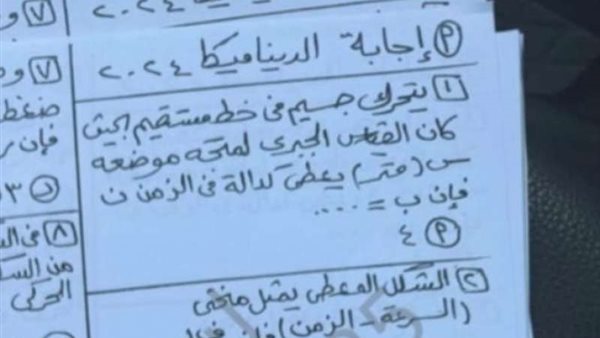 ٧ و
م إجابة الديناميكا ٢٠٢٤
١ يتحرك جسيم فى خط مستقيم بحيث
كان القياس الجبري لمتجه موضعه
س (متر) يعطى كدالة فى الزمن ن
فإن ب = ....
م ٤
٢ الشكل المعطى يمثل منحنى
(السرعة - الزمن)
٧ و
ضغط
فإن
د ٣
٨ فى
من
الحركى